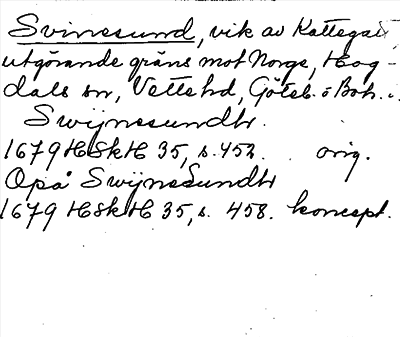 Svinesund, vik av Kattegat,
utgörande gräns mot Norge, Hog-
dals sn, Vette hd, Göteb. o Boh. l.
Swijnesundh.
1679 HSkH 35, s. 452. orig.
Opå Swijnesundh
1679 HSkH 35, s. 458. koncept.